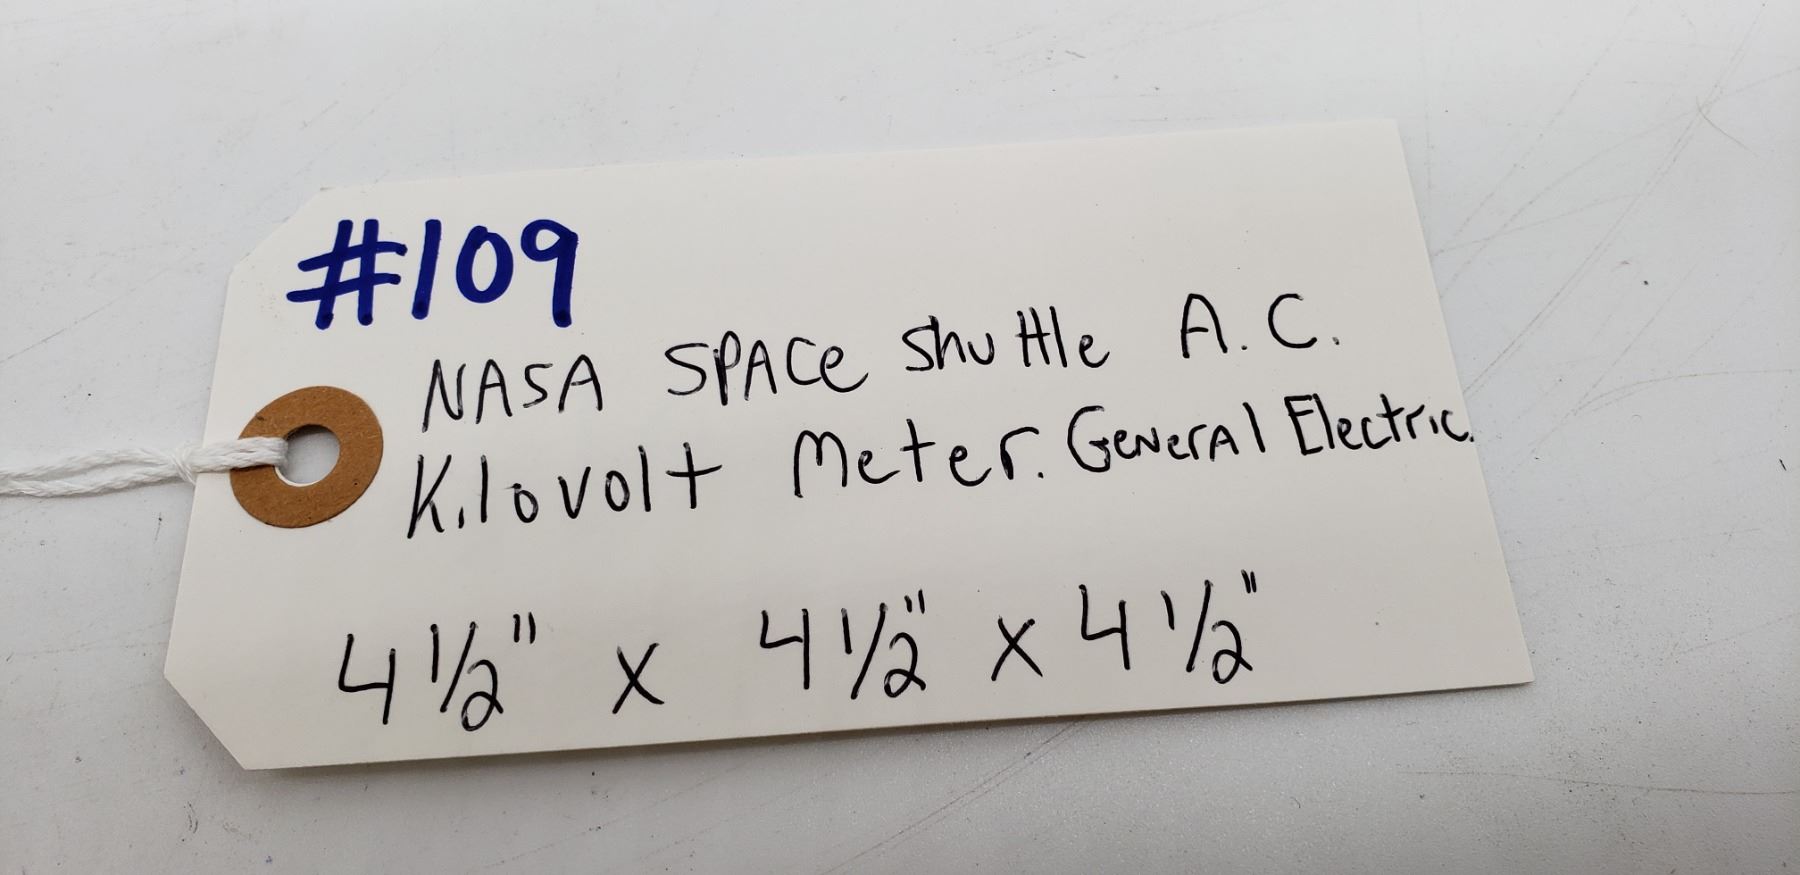 #109
NASA SPACe Shuttle A.C.
Kilovolt Meter. GeNerAl Electric.
4 1/2" x 4 1/2" x 4 1/2"